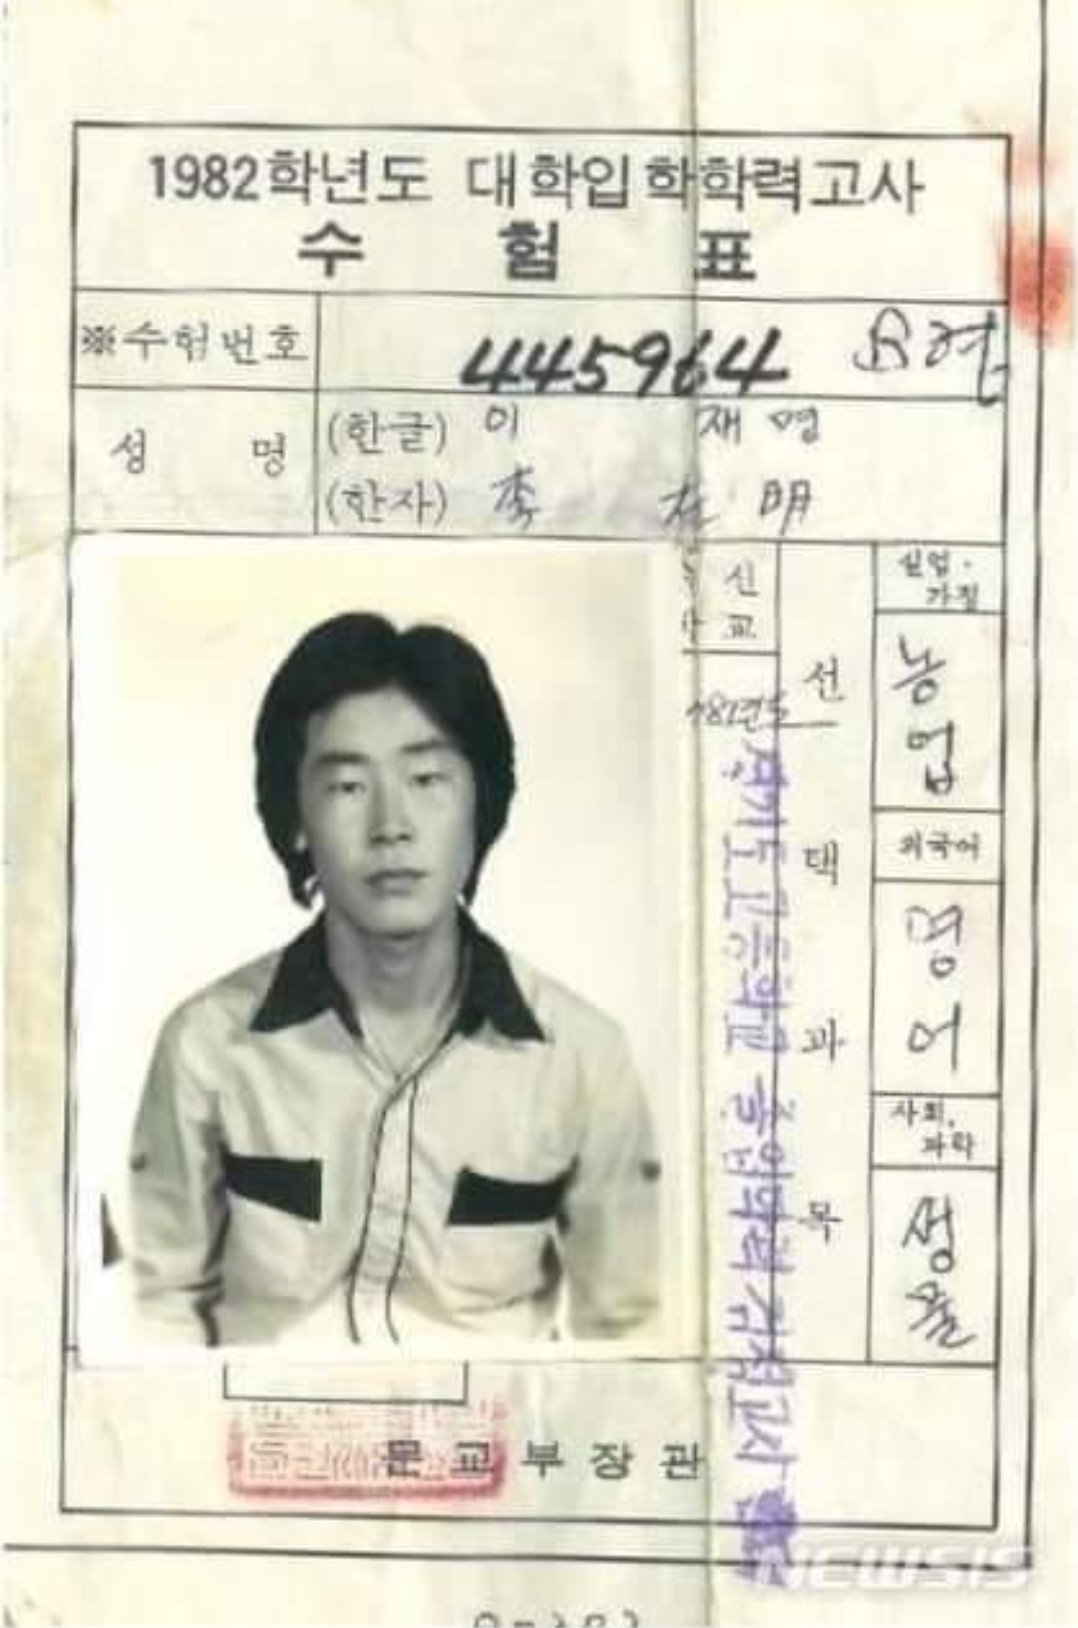 1982학년도 대학입학학력고사
수 험 표
※수험번호 445964
성 명 (한글) 이 재 명
(한자) 李 在 明
신
교
선 택 과 목
실업·
가정
농업
외국어
영어
사회,
과학
생물
경기도 고등학교 졸업학력 검정고시
문 교 부 장 관
NEWSIS